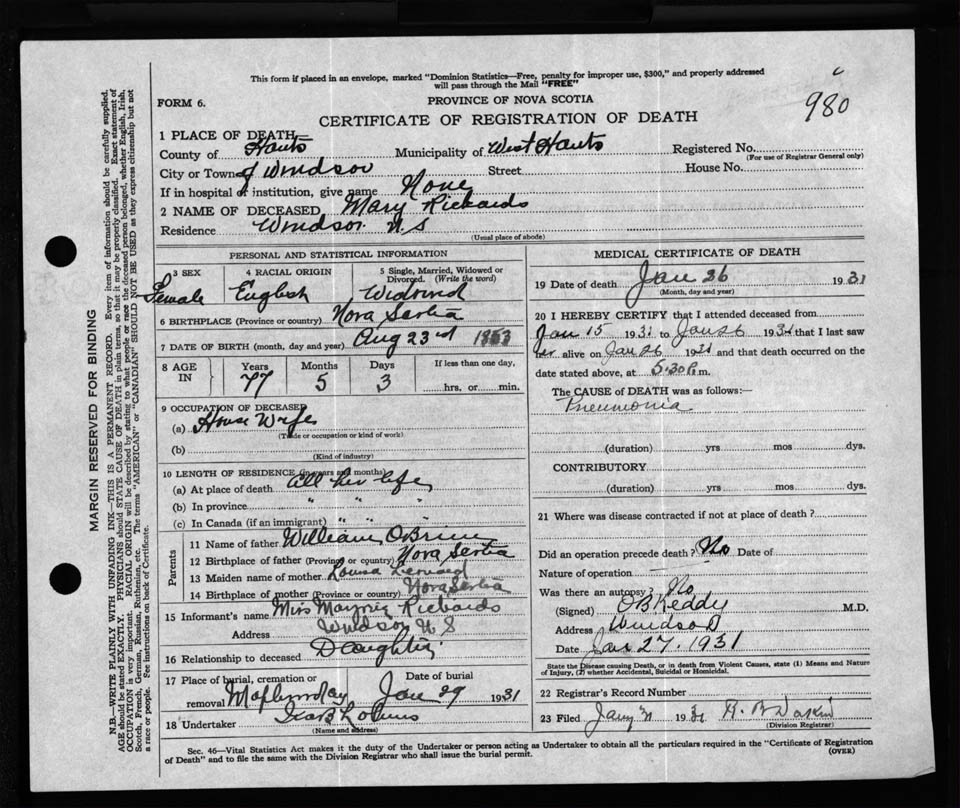 This form if placed in an envelope, marked "Dominion Statistics—Free, penalty for improper use, $300," and properly addressed
will pass through the Mail "FREE"
980
FORM 6.
PROVINCE OF NOVA SCOTIA
CERTIFICATE OF REGISTRATION OF DEATH
1 PLACE OF DEATH—
County of Hants Municipality of West Hants Registered No.
(For use of Registrar General only)
City or Town of Windsor Street House No.
If in hospital or institution, give name None
2 NAME OF DECEASED Mary Richards
Residence Windsor N.S
(Usual place of abode)
PERSONAL AND STATISTICAL INFORMATION
3 SEX 4 RACIAL ORIGIN 5 Single, Married, Widowed or
Divorced. (Write the word)
Female English Widowed
6 BIRTHPLACE (Province or country) Nova Scotia
7 DATE OF BIRTH (month, day and year) Aug 23rd 1853
8 AGE IN Years Months Days If less than one day,
77 5 3 hrs. or min.
9 OCCUPATION OF DECEASED
(a) House Wife
(Trade or occupation or kind of work)
(b)
(Kind of industry)
10 LENGTH OF RESIDENCE (in years and months)
(a) At place of death all her life
(b) In province " " "
(c) In Canada (if an immigrant) " " "
Parents
11 Name of father William OBrien
12 Birthplace of father (Province or country) Nova Scotia
13 Maiden name of mother
14 Birthplace of mother (Province or country) Nova Scotia
15 Informant's name Miss Richards
Address Windsor N S
16 Relationship to deceased Daughter
17 Place of burial, cremation or Date of burial
removal Jan 29 1931
18 Undertaker
(Name and address)
MEDICAL CERTIFICATE OF DEATH
19 Date of death Jan 26 1931
(Month, day and year)
20 I HEREBY CERTIFY that I attended deceased from
Jan 15 1931 to Jan 26 1931 that I last saw
her alive on Jan 26 1931 and that death occurred on the
date stated above, at 5.30 P.m.
The CAUSE OF DEATH was as follows:—
Pneumonia
(duration) yrs mos dys.
CONTRIBUTORY
(duration) yrs mos dys.
21 Where was disease contracted if not at place of death?
Did an operation precede death? No Date of
Nature of operation
Was there an autopsy? No
(Signed) OB Keddy M.D.
Address Windsor
Date Jan 27. 1931
State the Disease causing Death, or in death from Violent Causes, state (1) Means and Nature
of Injury, (2) whether Accidental, Suicidal or Homicidal.
22 Registrar's Record Number
23 Filed 1931
(Division Registrar)
Sec. 46—Vital Statistics Act makes it the duty of the Undertaker or person acting as Undertaker to obtain all the particulars required in the "Certificate of Registration
of Death" and to file the same with the Division Registrar who shall issue the burial permit.
(OVER)
MARGIN RESERVED FOR BINDING
N.B.—WRITE PLAINLY WITH UNFADING INK—THIS IS A PERMANENT RECORD. Every item of information should be carefully supplied.
AGE should be stated EXACTLY. PHYSICIANS should STATE CAUSE OF DEATH in plain terms, so that it may be properly classified. Exact statement of
OCCUPATION is very important. RACIAL ORIGIN will be described by stating to what people or race the deceased person belonged, whether English, Irish,
Scotch, French, German, Russian, Ruthenian, etc. The terms "AMERICAN" or "CANADIAN" SHOULD NOT BE USED as they express citizenship but not
a race or people. See instructions on back of Certificate.